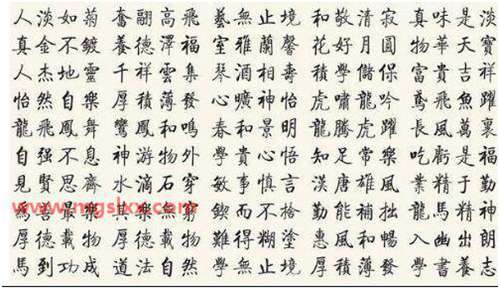 人淡如菊 奮翮高飛 藝無止境 和敬清寂 真味是淡
真金不鍍 養德澤福 室雅蘭馨 花好月圓 物華天寶
人杰地靈 千祥雲集 琴酒 積學儲 富貴吉祥
怡然自樂 厚積薄發 心曠神怡 虎嘯龍吟 鳶飛魚躍
龍飛鳳舞 鸞鳳和鳴 春和景明 龍騰虎躍 長風萬裏
自强不息 神游物外 學貴心悟 知足常樂 吃虧是福
見賢思齊 水滴石穿 敏事慎言 漢唐雄風 業精於勤
www.mgslxx.com 鍥而不捨 勤能補拙 馬精神
厚德載物 難得糊塗 惠風和暢 入幽出朗
馬到功成 道法自然 學無止境 厚積薄發 學書養志